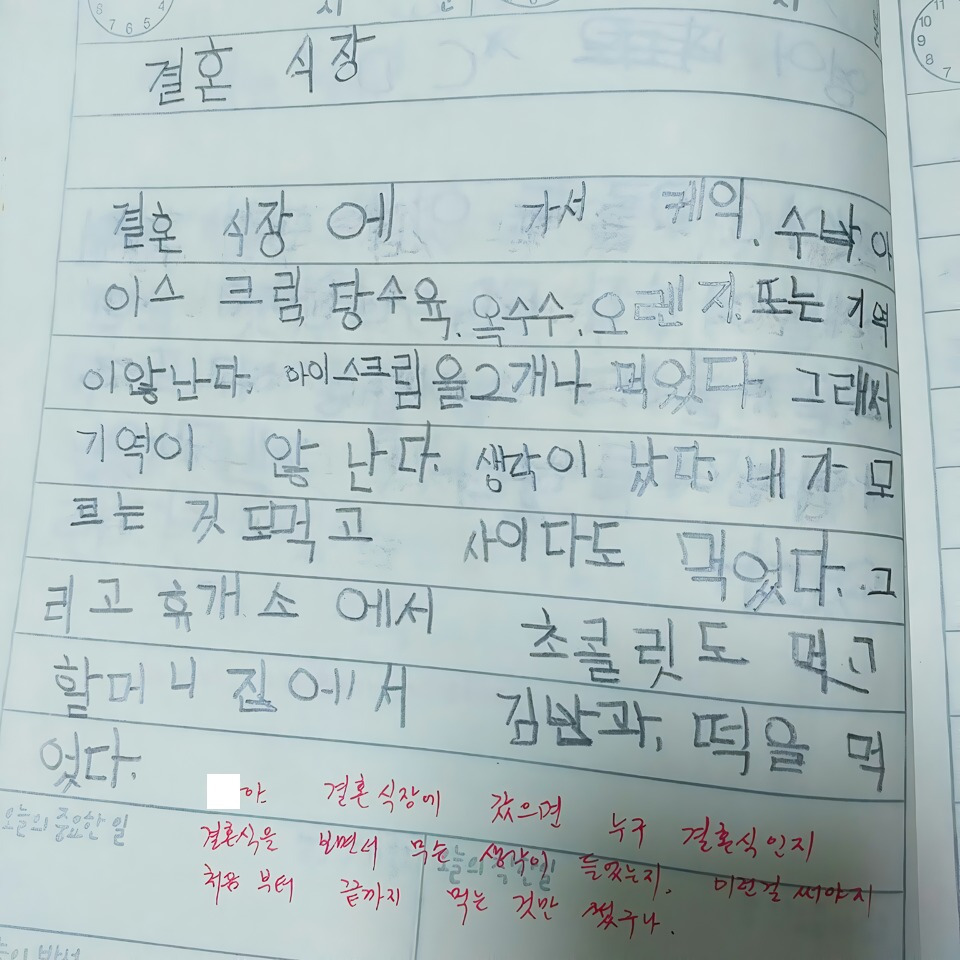 결혼 식장
결혼 식장 에 가서 케익, 수박, 아
이스 크림, 탕수육, 옥수수, 오렌지, 또는 기역
이않난다. 아이스크림을2개나 먹었다. 그래서
기역이 않 난다. 생각이 났다. 내가 모
르는 것 모먹고 사이다도 먹었다. 그
리고 휴개소 에서 초콜릿도 먹고
할머니 집에서 김밥과, 떡을 먹
었다.
야 결혼식장에 갔으면 누구 결혼식인지
결혼식을 보면서 무슨 생각이 들었는지. 이런걸 써야지
처음 부터 끝까지 먹는 것만 썼구나.
오늘의 중요한 일
오늘의 착한일